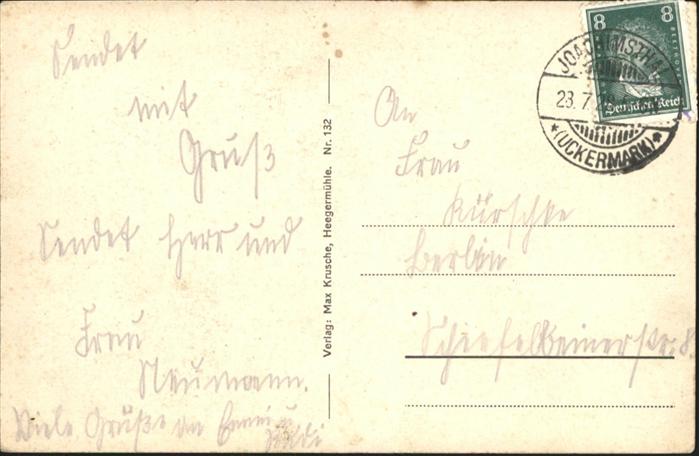 Sendet
mit
Gruß
Sendet Herr und
Frau
Neumann.
Viele Grüße an
Verlag: Max Krusche, Heegermühle. Nr. 132
8 8
Deutsches Reich
JOACHIMSTHAL
23.7.
*(UCKERMARK)*
An
Frau
Kürschke
Berlin